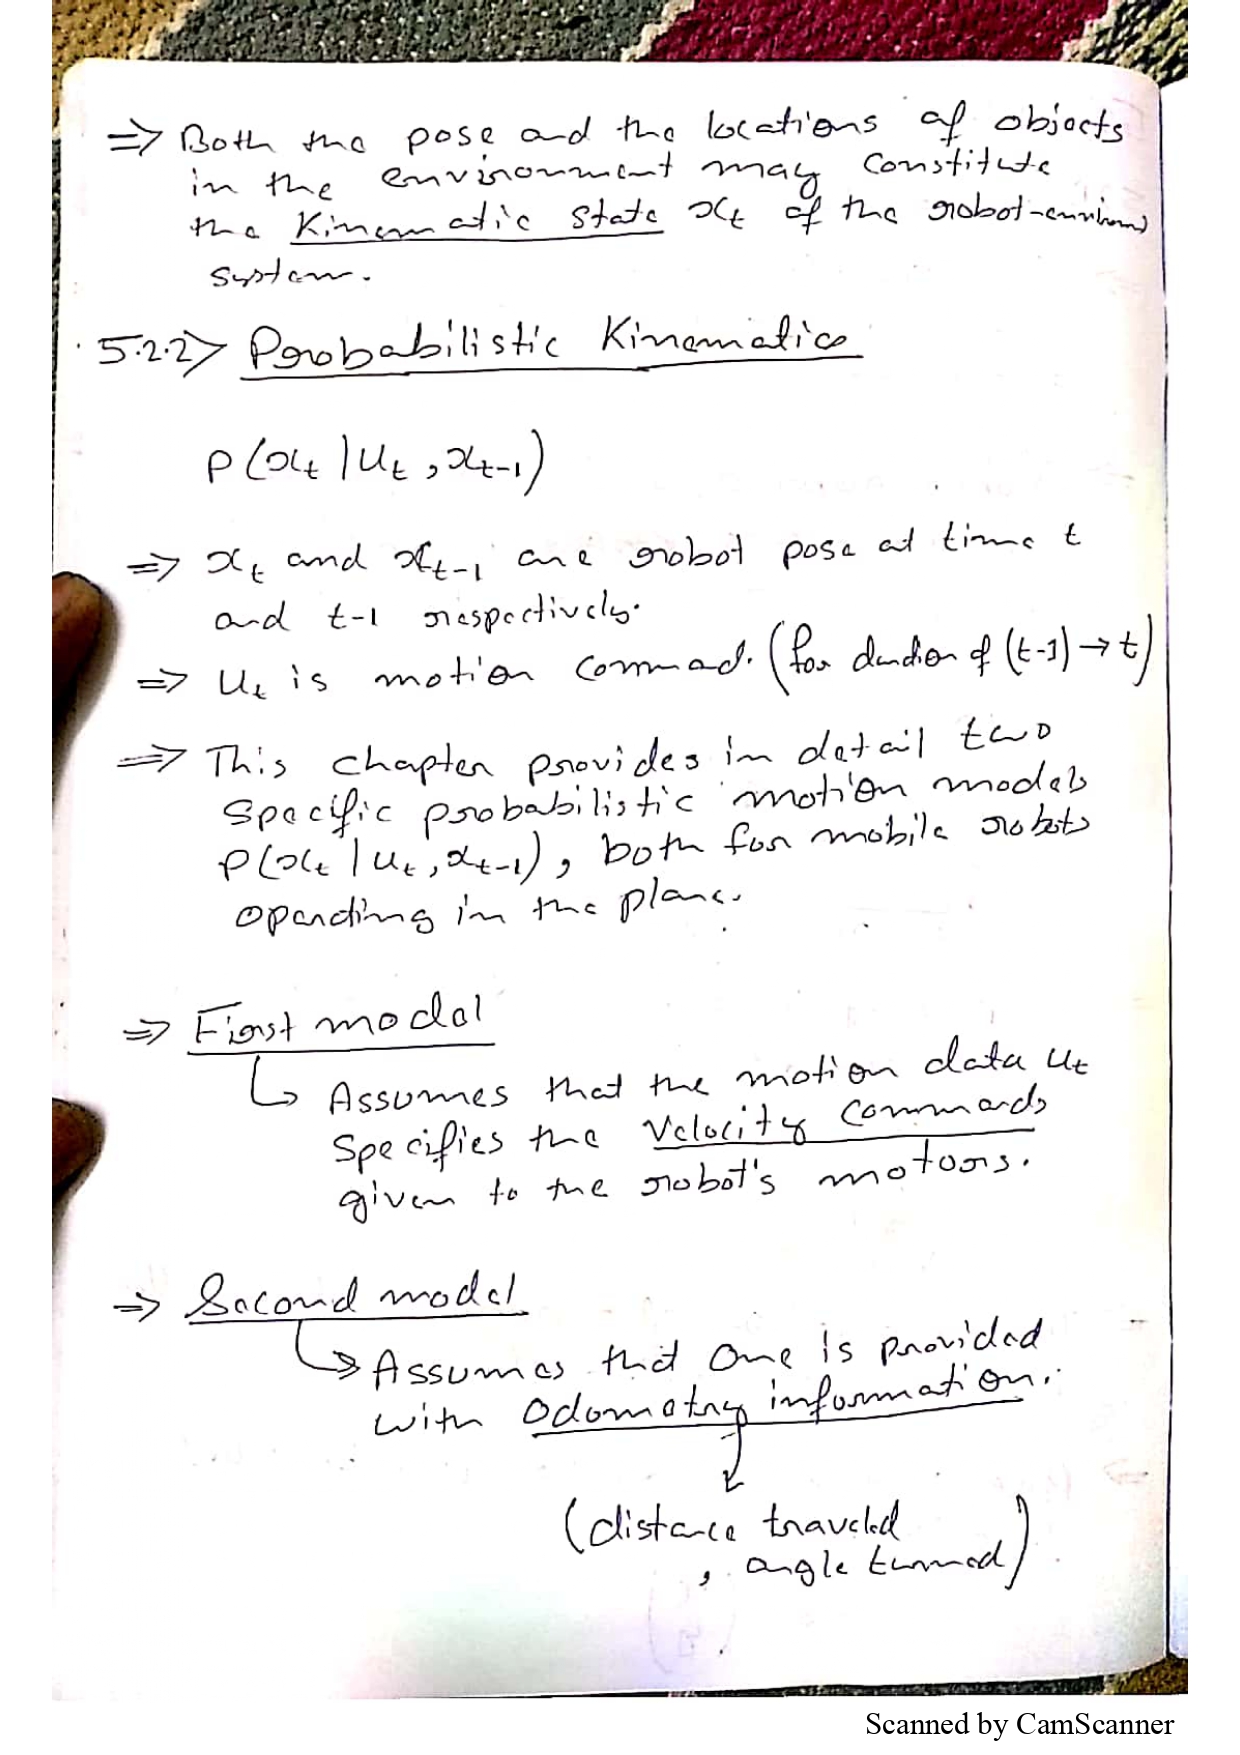 ⇒ Both the pose and the locations of objects
in the environment may constitute
the Kinematic State xₜ of the robot-environ
system.
5.2.2> Probabilistic Kinematics
P(xₜ | uₜ, xₜ₋₁)
⇒ xₜ and xₜ₋₁ are robot pose at time t
and t-1 respectively.
⇒ uₜ is motion command. (for duration of (t-1) → t)
⇒ This chapter provides in detail two
specific probabilistic motion models
P(xₜ | uₜ, xₜ₋₁), both for mobile robots
operating in the plane.
⇒ First model
↳ Assumes that the motion data uₜ
specifies the velocity commands
given to the robot's motors.
⇒ Second model
↳ Assumes that one is provided
with Odometry information.
↓
(distance traveled
, angle turned)
Scanned by CamScanner